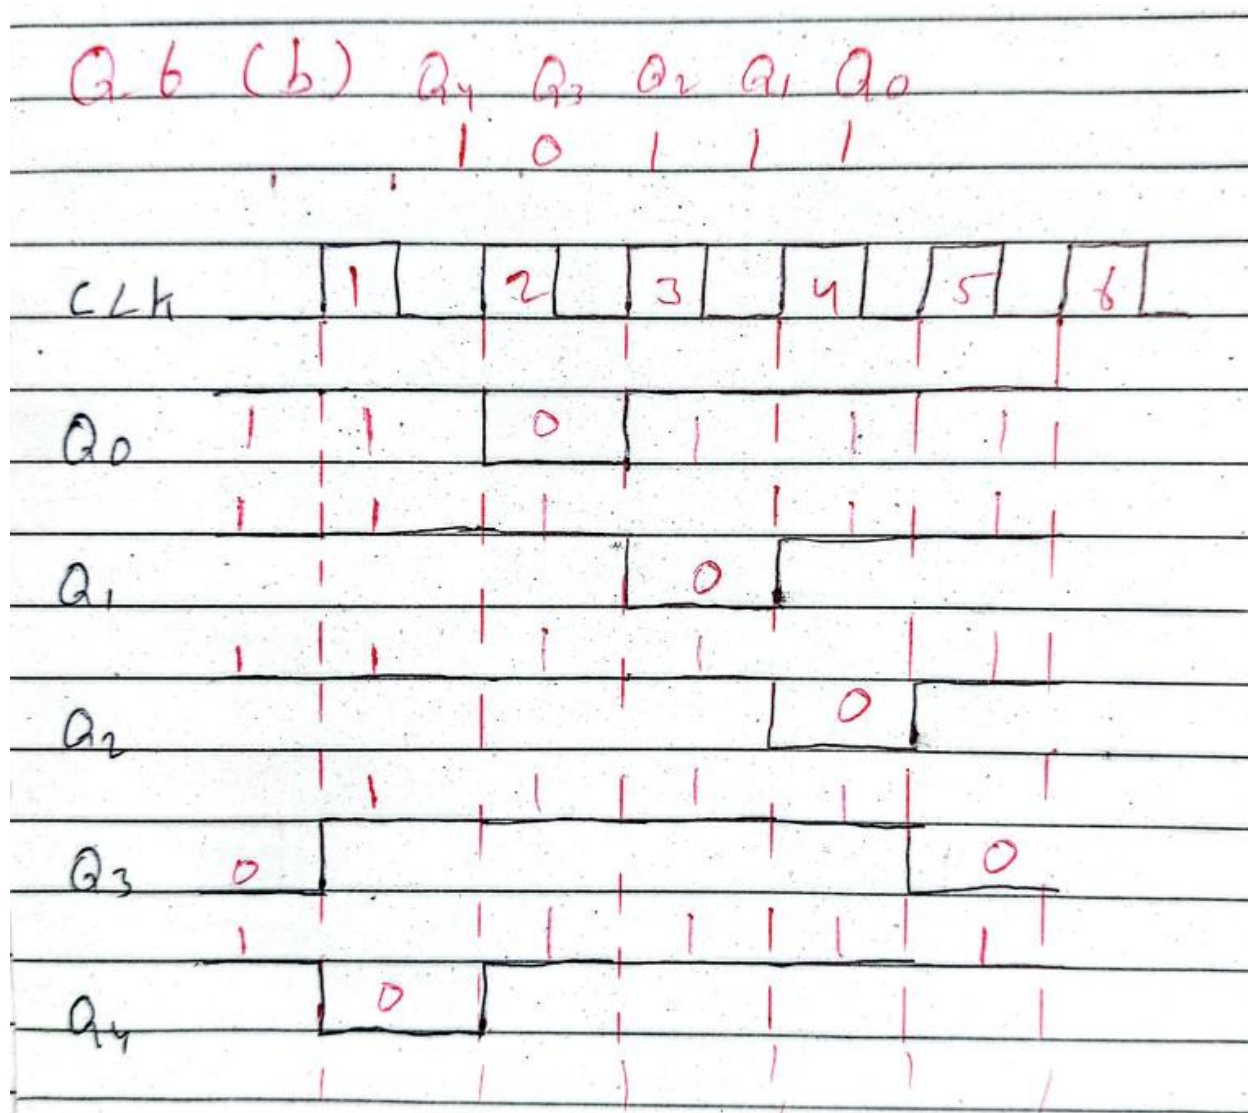 Q.6 (b) Q4 Q3 Q2 Q1 Q0
1 0 1 1 1
CLK 1 2 3 4 5 6
1 1 0 1 1 1
Q0
1 1 1 1 1
Q1 0
1 1 1 1 1
Q2 0
1 1 1 1
Q3 0 0
1 1 1 1 1
Q4 0